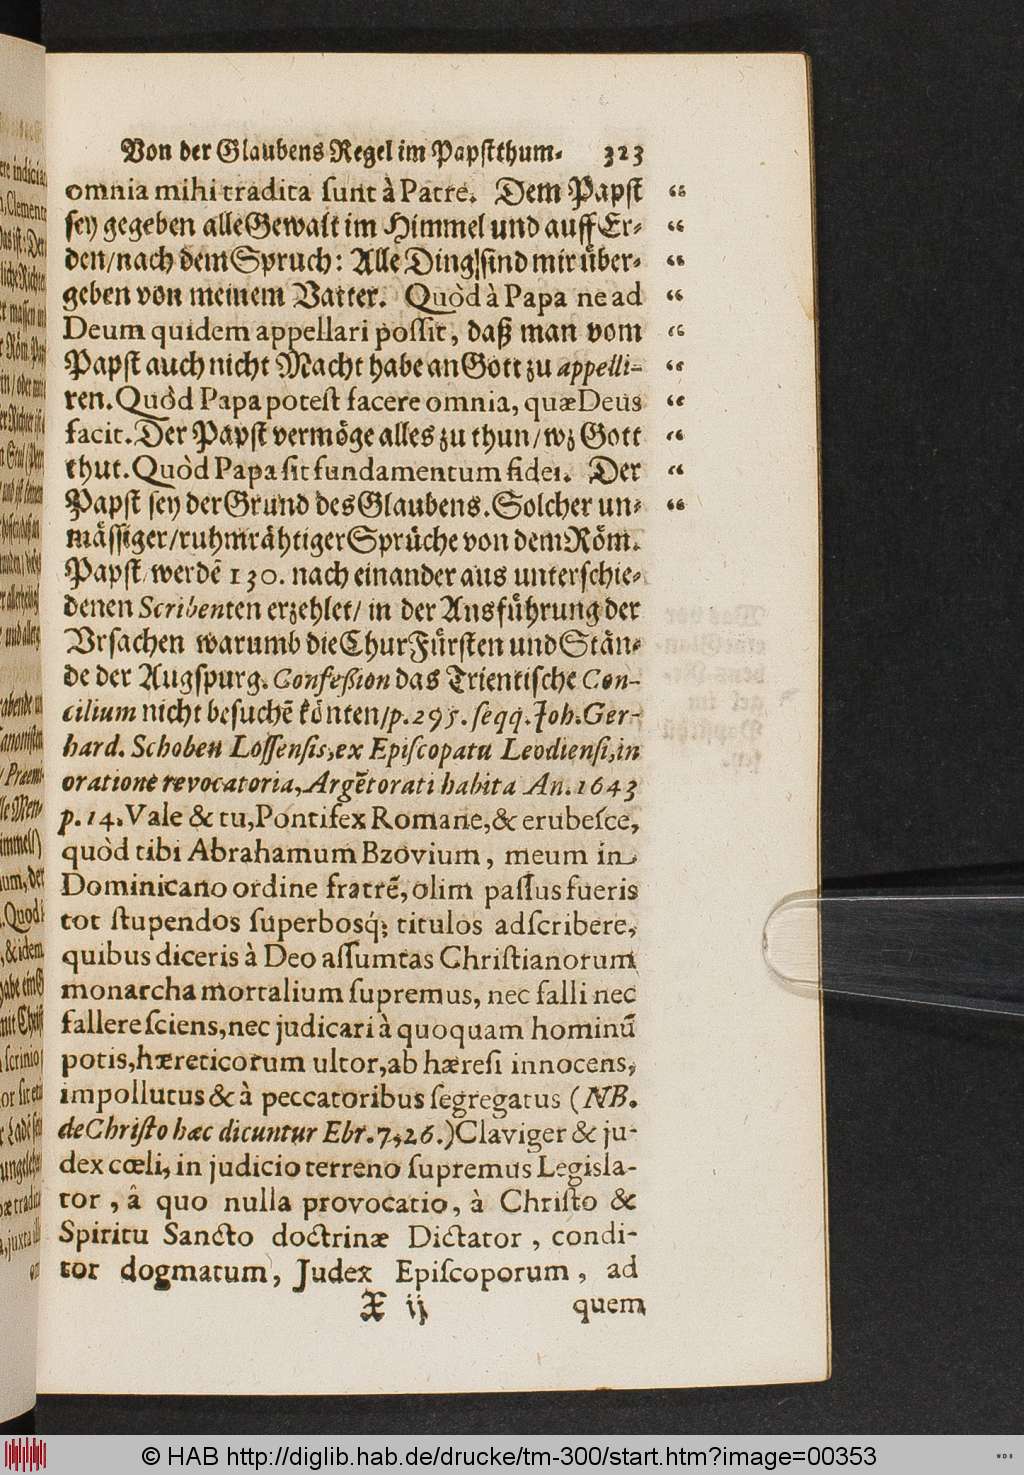 Von der Glaubens Regel im Papstthum. 323
omnia mihi tradita sunt à Patre. Dem Papst “
sey gegeben alle Gewalt im Himmel und auff Er- “
den/nach dem Spruch: Alle Ding sind mir über- “
geben von meinem Vatter. Quòd à Papa ne ad “
Deum quidem appellari possit, daß man vom “
Papst auch nicht Macht habe an Gott zu appelli- “
ren. Quòd Papa potest facere omnia, quæ Deus “
facit. Der Papst vermöge alles zu thun/wz Gott “
thut. Quòd Papa sit fundamentum fidei. Der “
Papst sey der Grund des Glaubens. Solcher un- “
mässiger/ruhmrähtiger Sprüche von dem Röm.
Papst/werdē 130. nach einander aus unterschie-
denen Scribenten erzehlet/ in der Ausführung der
Vrsachen warumb die ChurFürsten und Stän-
de der Augspurg. Confeßion das Trientische Con-
cilium nicht besuchē könten/p.295. seqq. Joh. Ger-
hard. Schoben Lossensis, ex Episcopatu Leodiensi, in
oratione revocatoria, Argētorati habita An. 1643
p. 14. Vale & tu, Pontifex Romane, & erubesce,
quòd tibi Abrahamum Bzovium, meum in
Dominicano ordine fratrē, olim passus fueris
tot stupendos superbosq́; titulos adscribere,
quibus diceris à Deo assumtas Christianorum
monarcha mortalium supremus, nec falli nec
fallere sciens, nec judicari à quoquam hominū
potis, hæreticorum ultor, ab hæresi innocens,
impollutus & à peccatoribus segregatus (NB.
de Christo hæc dicuntur Ebr. 7, 26.) Claviger & ju-
dex cœli, in judicio terreno supremus Legisla-
tor, â quo nulla provocatio, à Christo &
Spiritu Sancto doctrinæ Dictator, condi-
tor dogmatum, Judex Episcoporum, ad
X ij quem
© HAB http://diglib.hab.de/drucke/tm-300/start.htm?image=00353